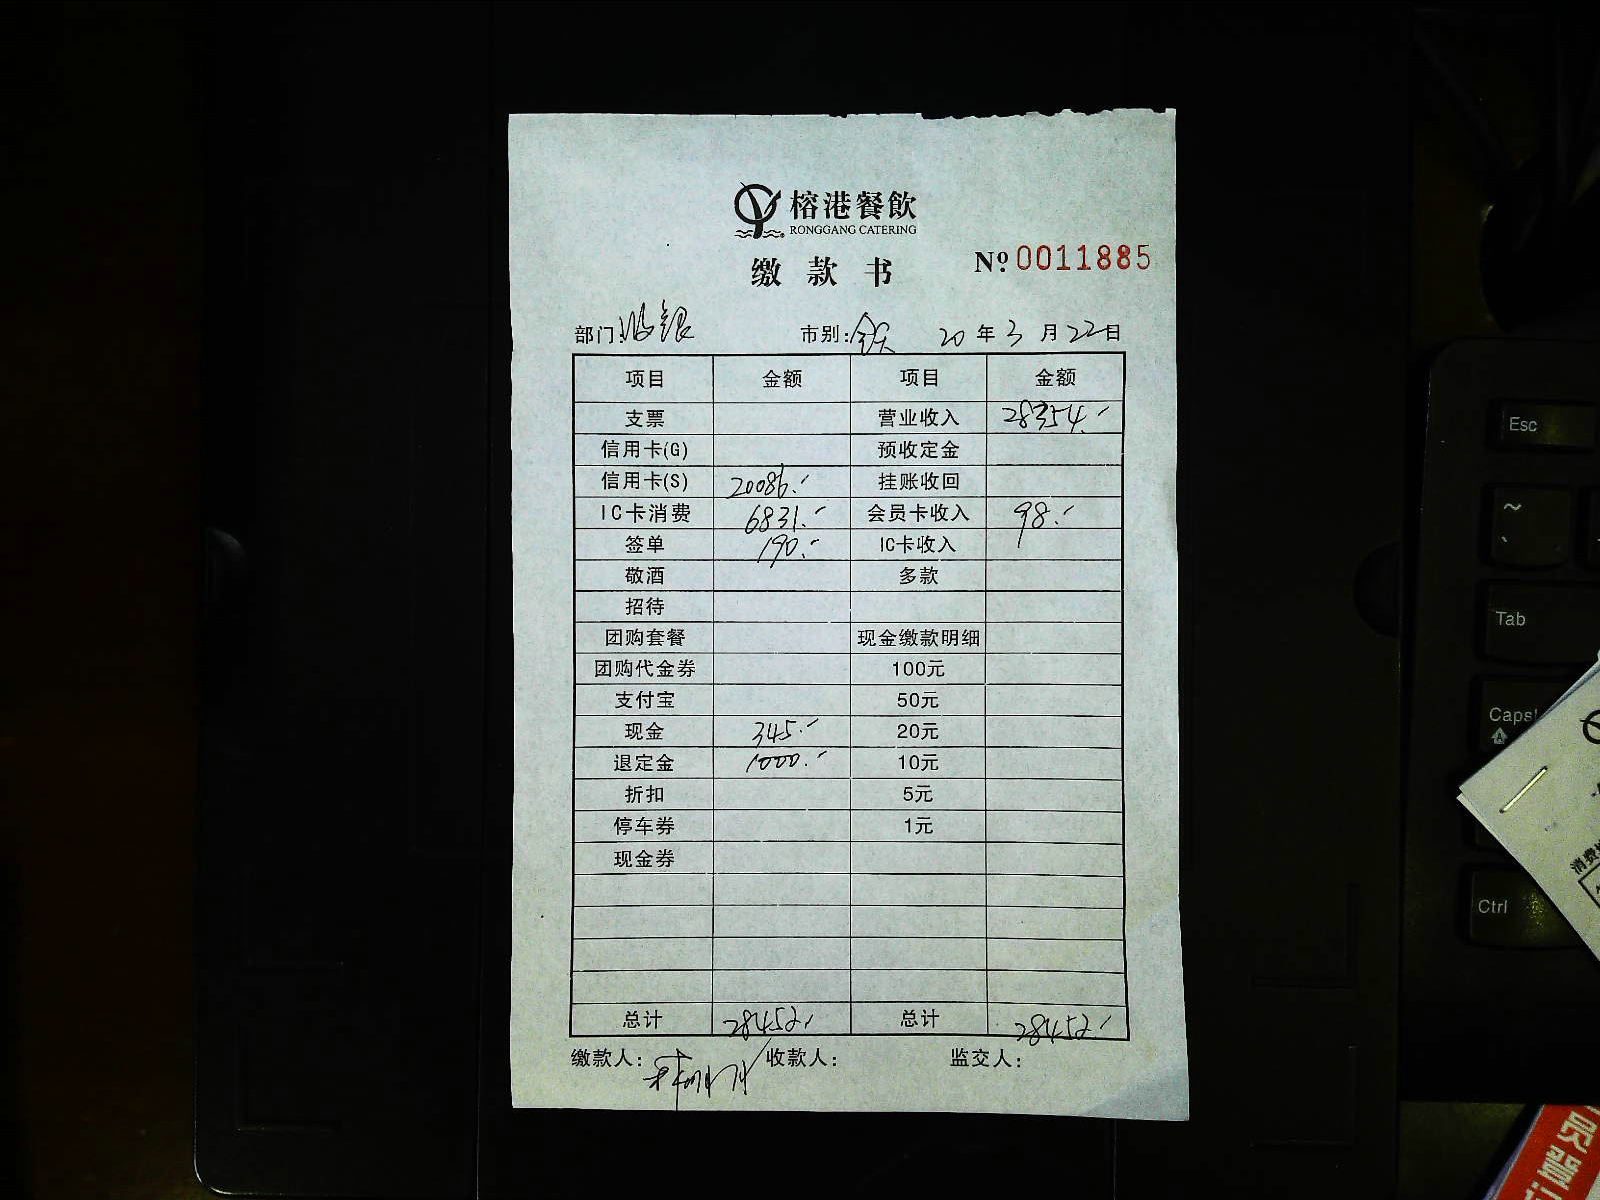 榕港餐飲
RONGGANG CATERING
缴款书
Nº 0011885
部门: 收银 市别: 全天 20年3月22日
项目 金额 项目 金额
支票 营业收入 28354.-
信用卡(G) 预收定金
信用卡(S) 20086.- 挂账收回
IC卡消费 6831.- 会员卡收入 98.-
签单 190.- IC卡收入
敬酒 多款
招待
团购套餐 现金缴款明细
团购代金券 100元
支付宝 50元
现金 345.- 20元
退定金 1000.- 10元
折扣 5元
停车券 1元
现金券
总计 28452.- 总计 28452.-
缴款人: 收款人: 监交人:
Esc
~
Tab
Caps
Ctrl
消费